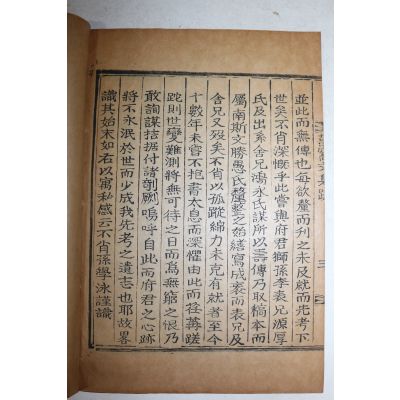 並此而無傳也每欲釐而刊之未及就而先考下
世矣不肖深慨乎此嘗與府君獅孫李袁兄源厚
氏及出系舍兄鴻永氏謀所以壽傳乃取稿本而
屬南斯文勝愚氏釐整之始繕寫成袠而袁兄及
舍兄又歿矣不肖以孤蹤綿力未克有就者至今
十數年未嘗不抱書太息而深懼由此而荏苒蹉
跎則世變難測將無可待之日而爲無窮之恨乃
敢詢謀拮据付諸剞劂嗚呼自此而府君之心跡
將不永泯於世而少成我先考之遺志也耶故畧
識其始末如右以寓私感云不肖孫學泳謹識